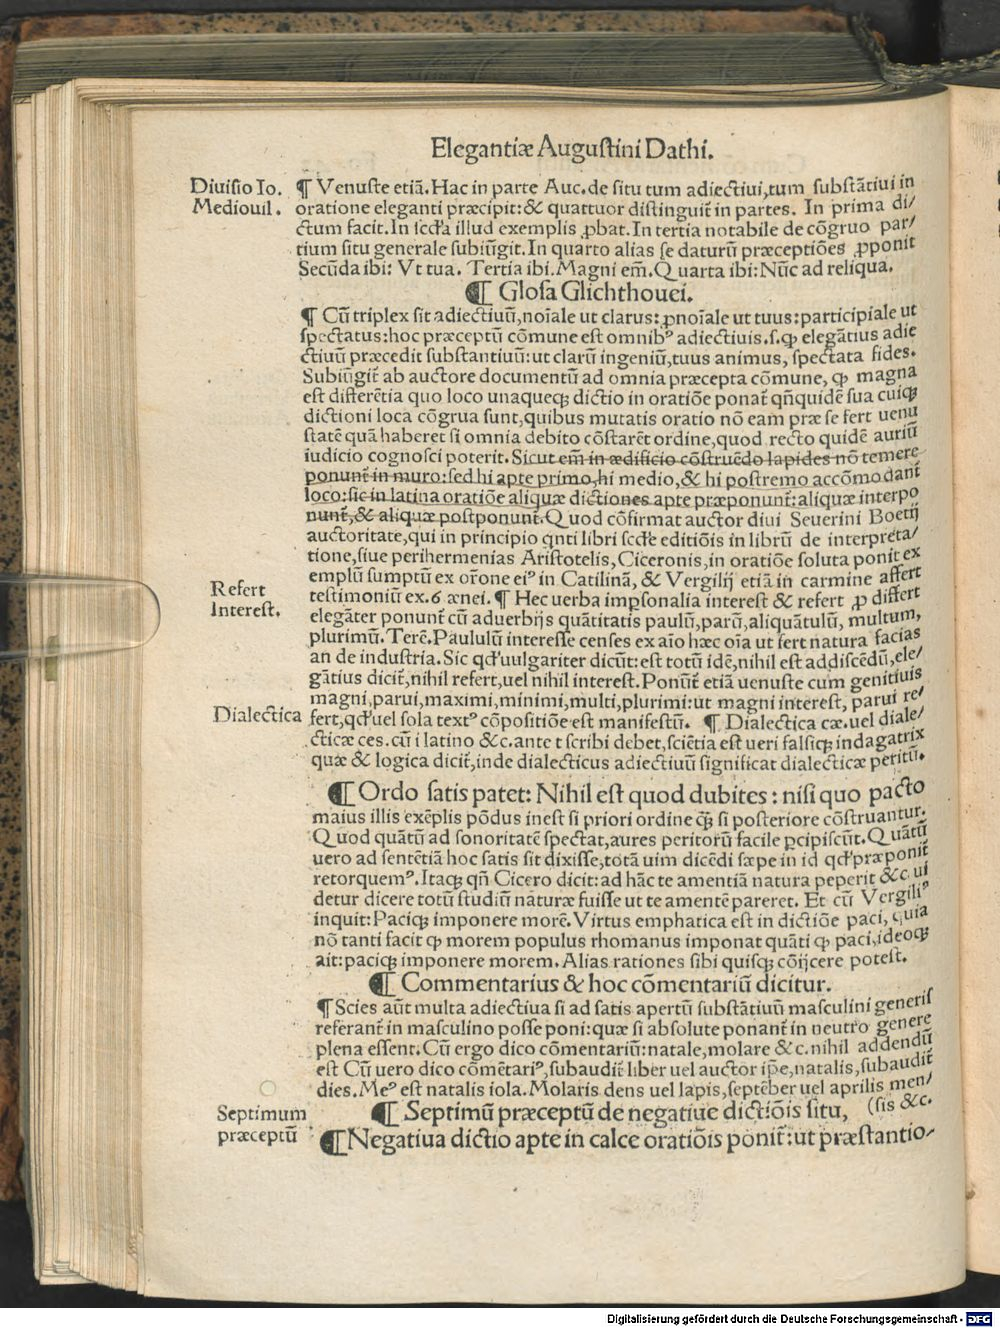 Elegantiæ Augustini Dathi.
Diuisio Io.
Mediouil.
¶ Venuste etiã. Hac in parte Auc. de situ tum adiectiui, tum substãtiui in
oratione eleganti præcipit: & quattuor distinguit̃ in partes. In prima di/
ctum facit. In scďa illud exemplis ꝓbat. In tertia notabile de cõgruo par/
tium situ generale subiũgit. In quarto alias se daturũ præceptiões ꝓponit
Secũda ibi: Vt tua. Tertia ibi. Magni em̃. Quarta ibi: Nũc ad reliqua.
¶ Glosa Glichthouei.
¶ Cũ triplex sit adiectiuũ, noĩale ut clarus: ꝓnoĩale ut tuus: participiale ut
spectatus: hoc præceptũ cõmune est omnibꝰ adiectiuis. s. ꝙ elegãtius adie
ctiuũ præcedit substantiuũ: ut clarũ ingeniũ, tuus animus, spectata fides.
Subiũgit̃ ab auctore documentũ ad omnia præcepta cõmune, ꝙ magna
est differẽtia quo loco unaqueqꝫ dictio in oratiõe ponat̃ qñquidẽ sua cuiqꝫ
dictioni loca cõgrua sunt, quibus mutatis oratio nõ eam præ se fert uenu
statẽ quã haberet si omnia debito cõstarẽt ordine, quod recto quidẽ auriũ
iudicio cognosci poterit. Sicut em̃ in ædificio cõstruẽdo lapides nõ temere
ponunt̃ in muro: sed hi apte primo, hi medio, & hi postremo accõmodant̃
loco: sic in latina oratiõe aliquæ dictiones apte præponunt̃: aliquæ interpo
nunt̃, & aliquæ postponunt̃. Quod cõfirmat auctor diui Seuerini Boetij
auctoritate, qui in principio qnti libri scďe editiõis in librũ de interpreta/
tione, siue perihermenias Aristotelis, Ciceronis, in oratiõe soluta ponit ex
emplũ sumptũ ex or̃one eiꝰ in Catilinã, & Vergilij etiã in carmine affert
testimoniũ ex. 6 ænei. ¶ Hec uerba imꝑsonalia interest & refert ꝓ differt
Refert
Interest.
elegãter ponunt̃ cũ aduerbijs quãtitatis paulũ, parũ, aliquãtulũ, multum,
plurimũ. Terẽ. Paululũ interesse censes ex aĩo hæc oĩa ut fert natura facias
an de industria. Sic qď uulgariter dicũt: est totũ idẽ, nihil est addiscẽdũ, ele/
gãtius dicit̃, nihil refert, uel nihil interest. Ponũt̃ etiã uenuste cum genitiuis
magni, parui, maximi, minimi, multi, plurimi: ut magni interest, parui re/
Dialectica
fert, qď uel sola textꝰ cõpositiõe est manifestũ. ¶ Dialectica cæ. uel diale/
cticæ ces. cũ i latino &c. ante t scribi debet, sciẽtia est ueri falsiqꝫ indagatrix
quæ & logica dicit̃, inde dialecticus adiectiuũ significat dialecticæ peritũ.
¶ Ordo satis patet: Nihil est quod dubites: nisi quo pacto
maius illis exẽplis põdus inest si priori ordine qꝫ̃ si posteriore cõstruantur.
Quod quãtũ ad sonoritatẽ spectat, aures peritorũ facile ꝑcipiscũt. Quãtũ
uero ad sentẽtiã hoc satis sit dixisse, totã uim dicẽdi sæpe in id qď præponit̃
retorquemꝰ. Itaqꝫ qñ Cicero dicit: ad hãc te amentiã natura peperit &c. ui
detur dicere totũ studiũ naturæ fuisse ut te amentẽ pareret. Et cũ Vergiliꝰ
inquit: Paciqꝫ imponere morẽ. Virtus emphatica est in dictiõe paci, quia
nõ tanti facit ꝙ morem populus rhomanus imponat quãti ꝙ paci, ideoqꝫ
ait: paciqꝫ imponere morem. Alias rationes sibi quisqꝫ cõijcere potest.
¶ Commentarius & hoc cõmentariũ dicitur.
¶ Scies aũt multa adiectiua si ad satis apertũ substãtiuũ masculini generis
referant̃ in masculino posse poni: quæ si absolute ponant̃ in neutro genere
plena essent. Cũ ergo dico cõmentariũ: natale, molare &c. nihil addendũ
est Cũ uero dico cõmẽtariꝰ, subaudit̃ liber uel auctor ip̃e, natalis, subaudit̃
dies. Meꝰ est natalis iola. Molaris dens uel lapis, septẽber uel aprilis men/
(sis &c.
Septimum
præceptũ
¶ Septimũ præceptũ de negatiue dictiõis situ,
¶ Negatiua dictio apte in calce oratiõis ponit̃: ut præstantio/
Digitalisierung gefördert durch die Deutsche Forschungsgemeinschaft - DFG